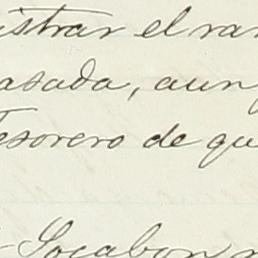 istrar el ra
asada, aun
Tesorero de qu
Socabon